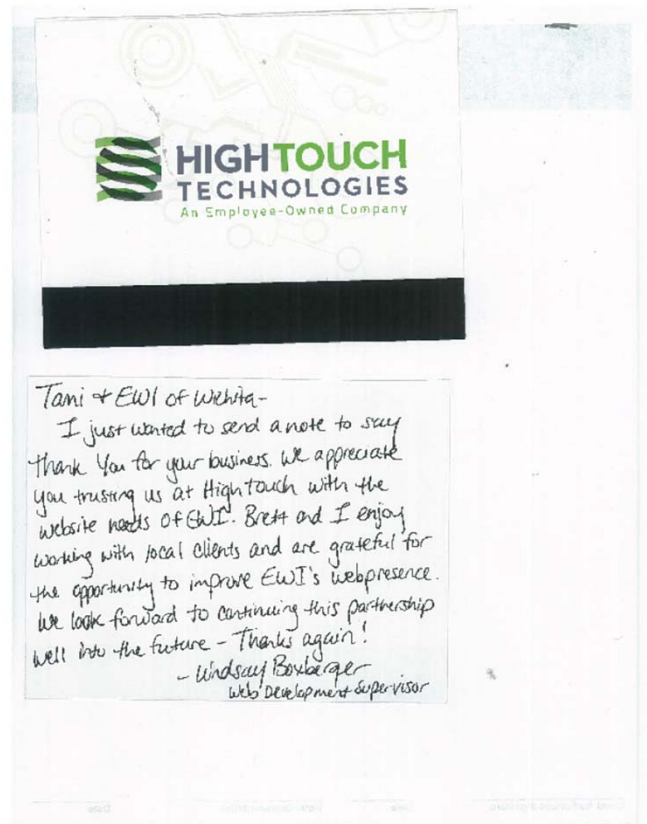 HIGHTOUCH
TECHNOLOGIES
An Employee-Owned Company
Tami & EWI of Wichita-
I just wanted to send a note to say
thank You for your business. We appreciate
you trusting us at High Touch with the
website needs of EWI. Brett and I enjoy
working with local clients and are grateful for
the opportunity to improve EWI's webpresence.
We look forward to continuing this partnership
well into the future - Thanks again!
- Lindsay Boxberger
Web Development Supervisor